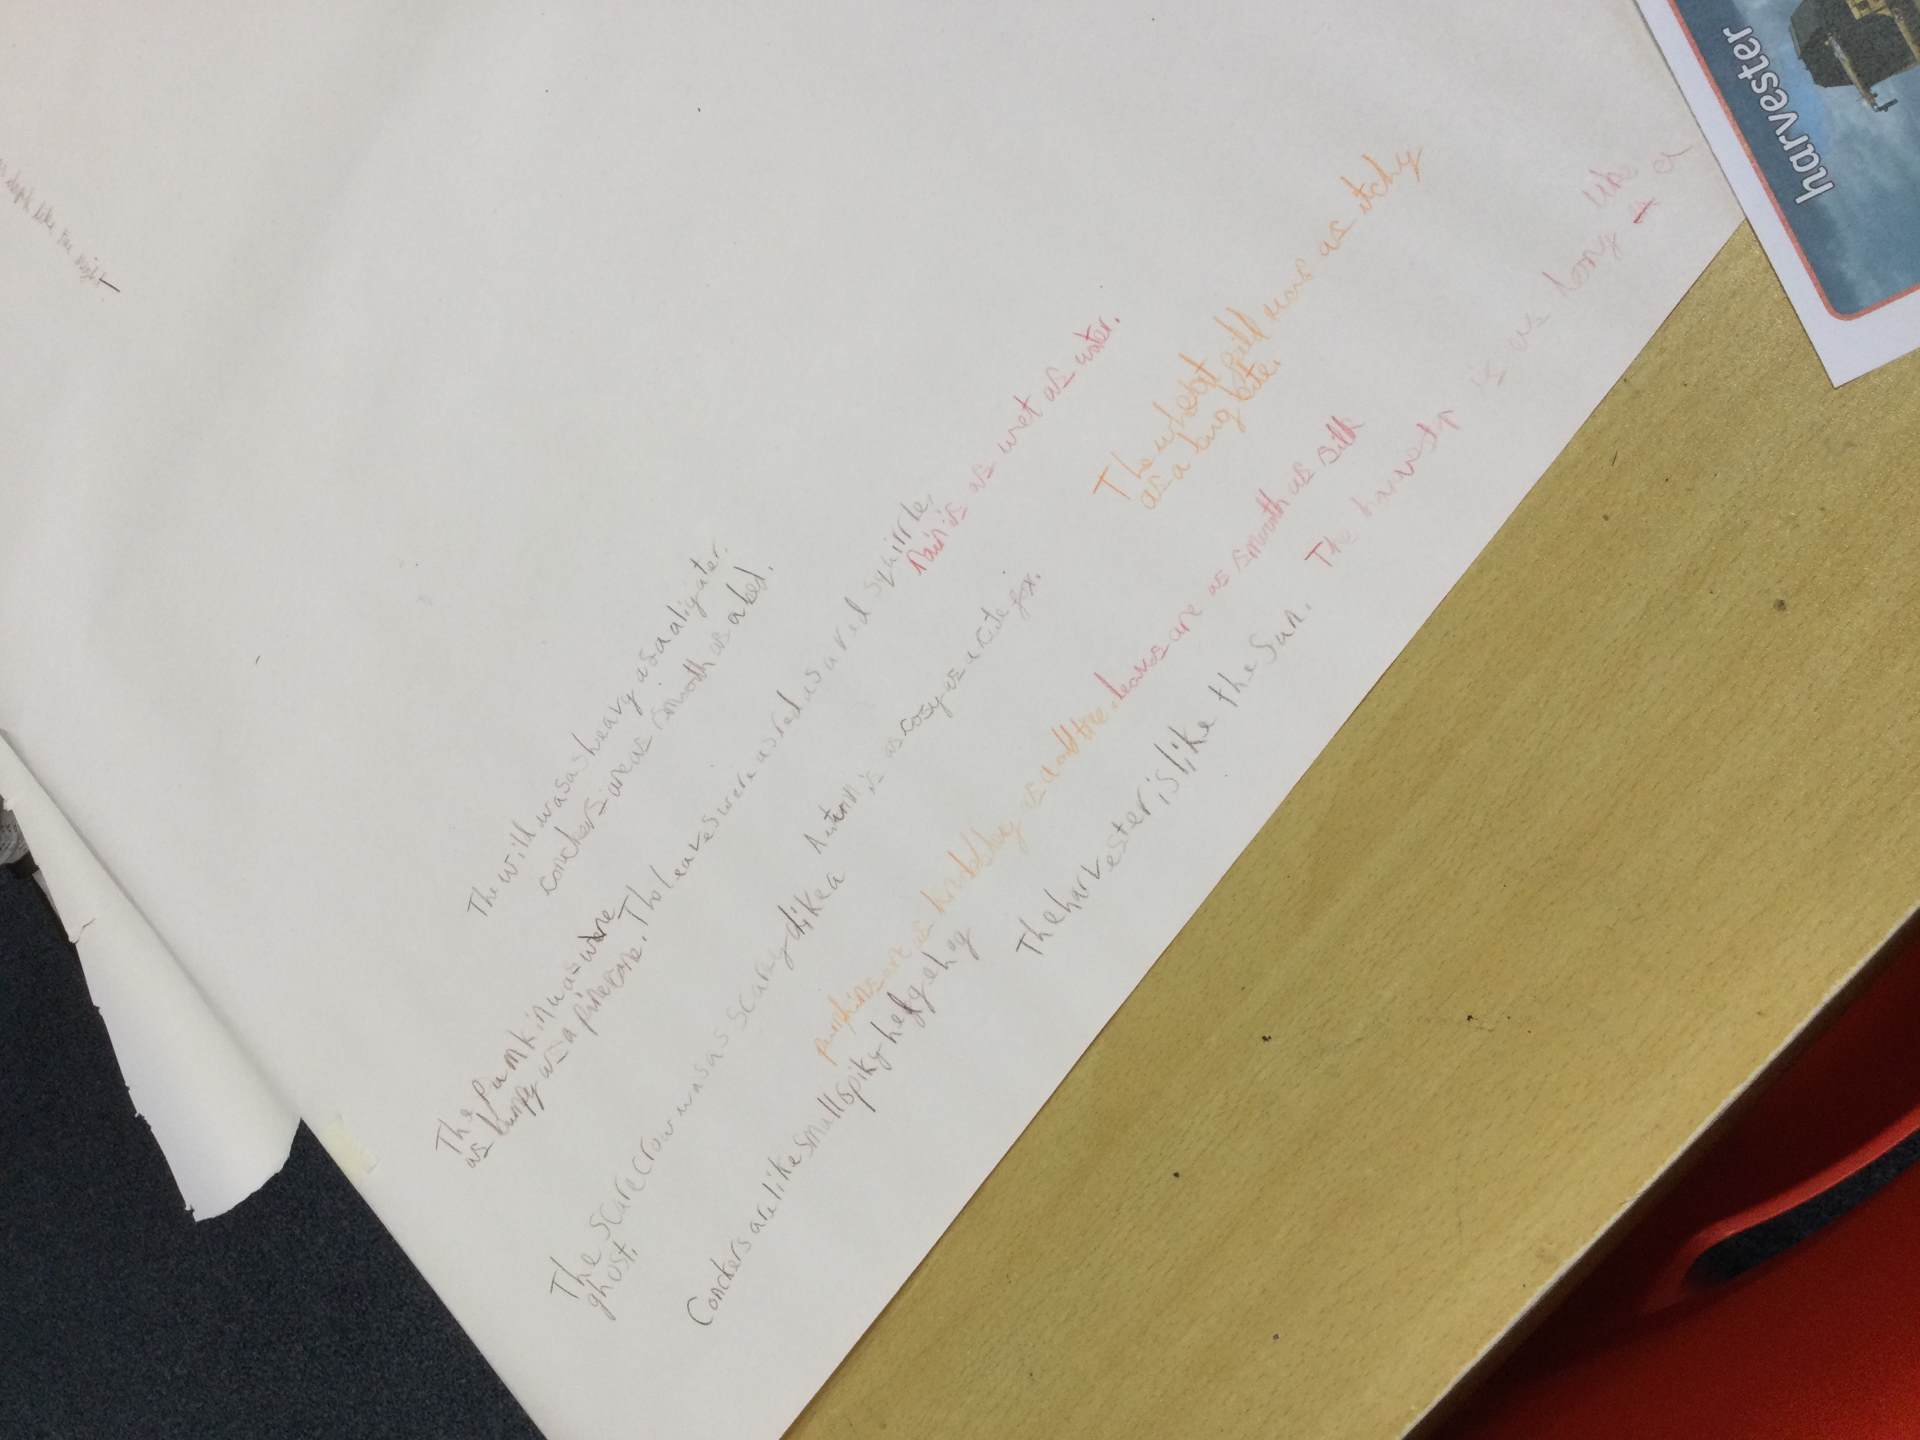 harvester
The will was as heavy as a aligater.
conckers are as smooth as a bed.
The Pumkin was were
as bumpy as a pinecone. The leaves were as red as a red squirrle.
Rain is as wet as water.
The wheat was as itchy
as a bug bite.
The scarecrow was as scarey like a
ghost.
Autumn is as cosy as a cute fox.
pumpkins are as as a tree. leaves are as smooth as silk
Conckers are like small spiky hedgehog
The harvester is like the Sun.
The is as long like a
like the night